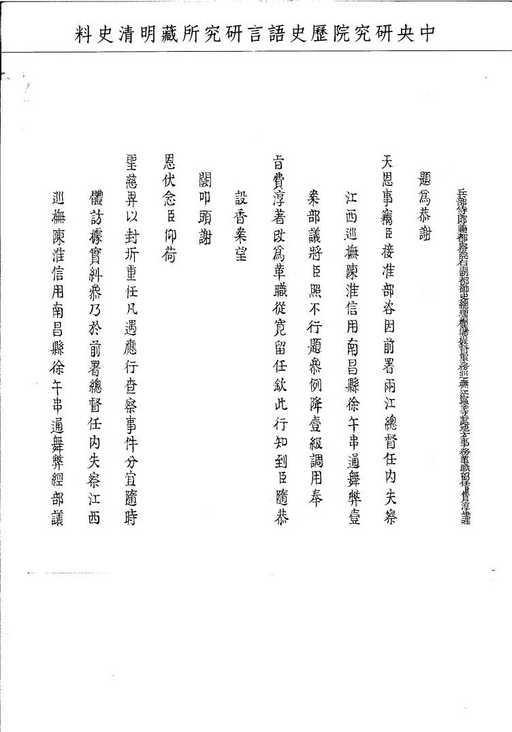 中央研究院歷史語言研究所藏明清史料
兵部侍郎兼都察院右副都御史總理糧儲提督軍務巡撫江寧等處地方革職留任臣費淳謹
題為恭謝
天恩事竊臣接准部咨因前署兩江總督任內失察
江西巡撫陳淮信用南昌縣徐午串通舞弊壹
案部議將臣照不行題參例降壹級調用奉
旨費淳著改為革職從寬留任欽此行知到臣隨恭
設香案望
闕叩頭謝
恩伏念臣仰荷
聖慈畀以封圻重任凡遇應行查察事件分宜隨時
體訪據實糾參乃於前署總督任內失察江西
巡撫陳淮信用南昌縣徐午串通舞弊經部議